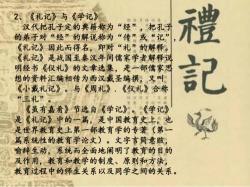 2、《礼记》与《学记》
汉代把孔子定的典籍称为“经”，把孔子
的弟子对“经”的解说称为“传”或“记”，
《礼记》因此而得名，即对“礼”的解释。
《礼记》是战国至秦汉年间儒家学者解释说
明经书《仪礼》的文章选集，是一部儒家思
想的资料汇编相传为西汉戴圣编撰，又叫
《小戴礼记》，与《周礼》、《仪礼》合称
“三礼”。
《虽有嘉肴》节选自《学记》，《学记》
是《礼记》中的一篇，是中国教育史上，也
是世界教育史上第一部教育学的专著（第一
篇系统性的教育学论文）。文字言简意赅，
喻辞生动，系统而全面地阐明了教育的目的
及作用，教育和教学的制度、原则和方法，
教育过程中的师生关系以及同学之间的关系。
禮記